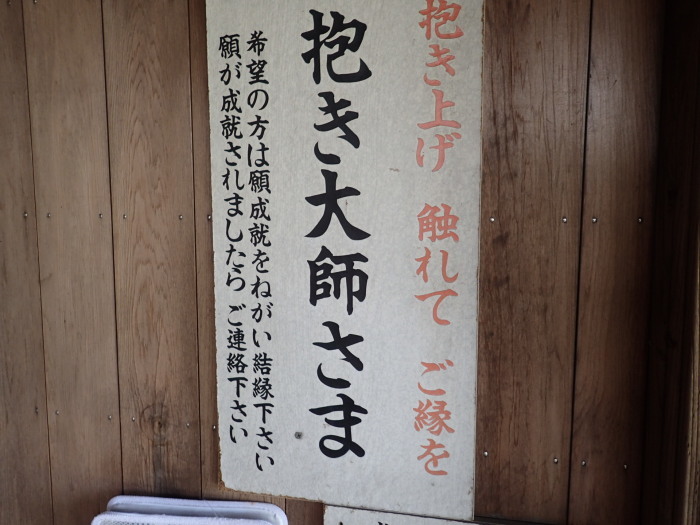 抱き上げ 触れて ご縁を
抱き大師さま
希望の方は願成就をねがい結縁下さい
願が成就されましたら ご連絡下さい